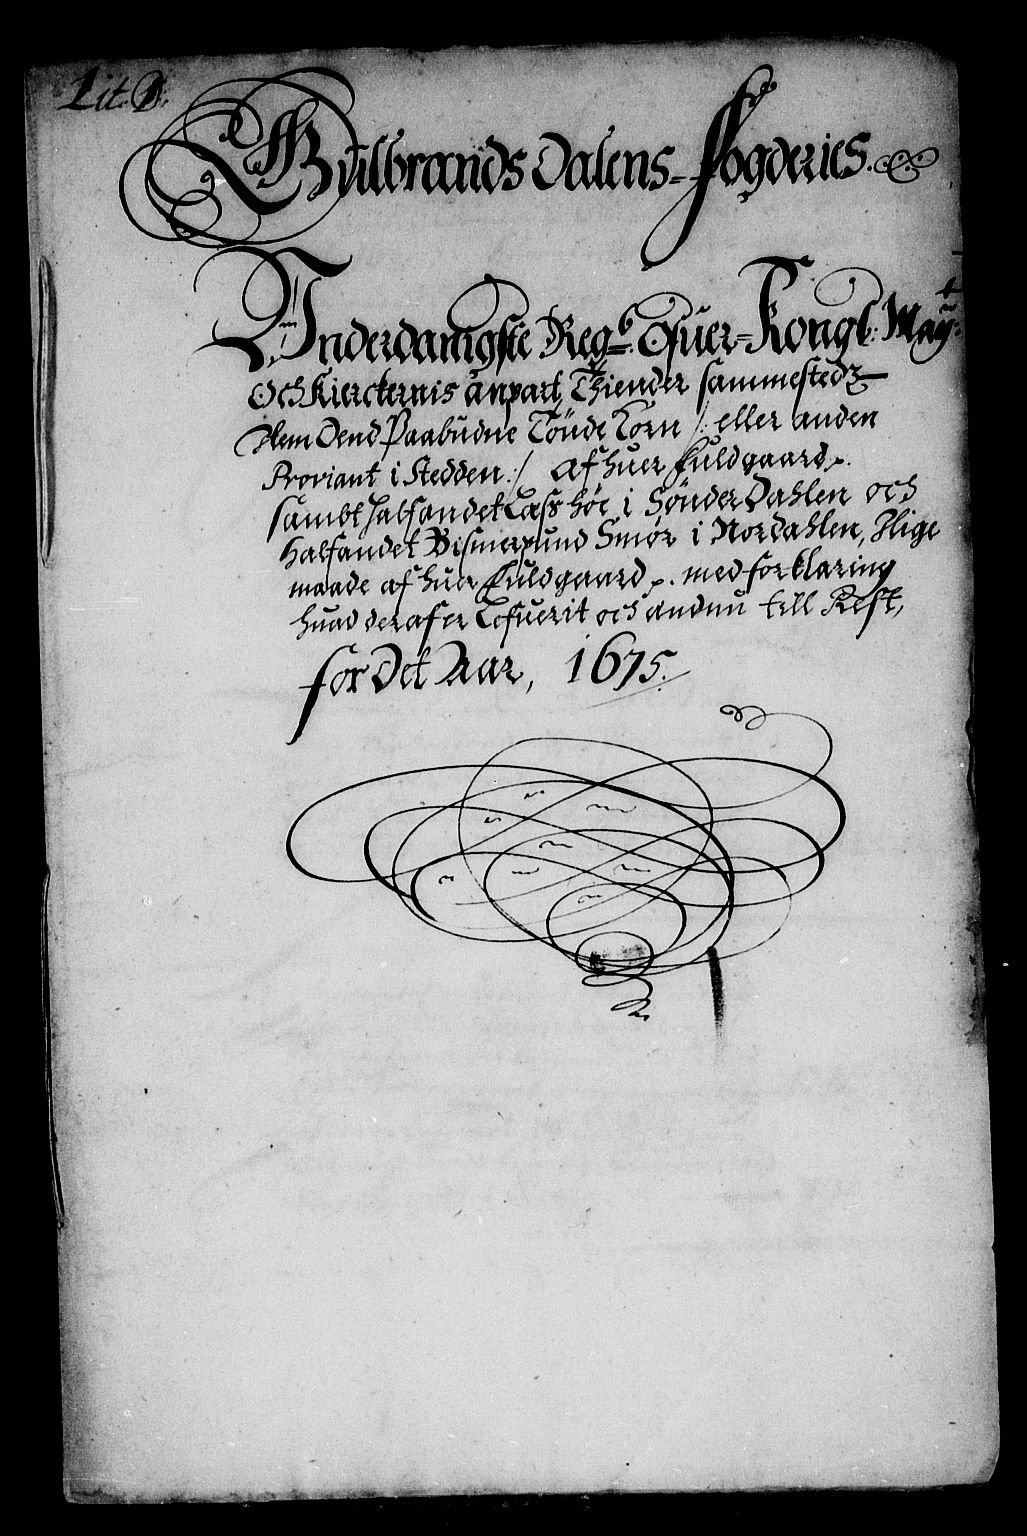 Lit. D.
Gulbrands Dalens Fogderies.
Underdanigste Regb. Ofuer Kongl: Mayt:
Och Kierckernis anpart Thiender sammestedz
Item Dend Paabudne Tönde Korn /: eller anden
Proviant i Stedden :/ af huer fuldgaard,
sambt halfandet Lass höe i SønderDahlen och
halfandet Bismerpund Smør i Nordahlen, Ilige
maade af huer fuldgaard, med forklaring
huad deraf er Lefuerit och andnu till Rest,
for Det Aar, 1675.